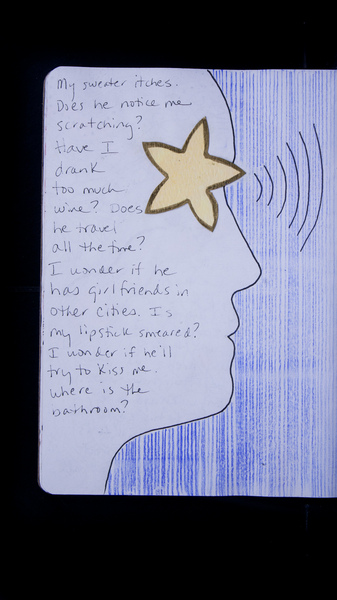 My sweater itches.
Does he notice me
scratching?
Have I
drank
too much
wine? Does
he travel
all the time?
I wonder if he
has girlfriends in
other cities. Is
my lipstick smeared?
I wonder if he'll
try to kiss me.
where is the
bathroom?